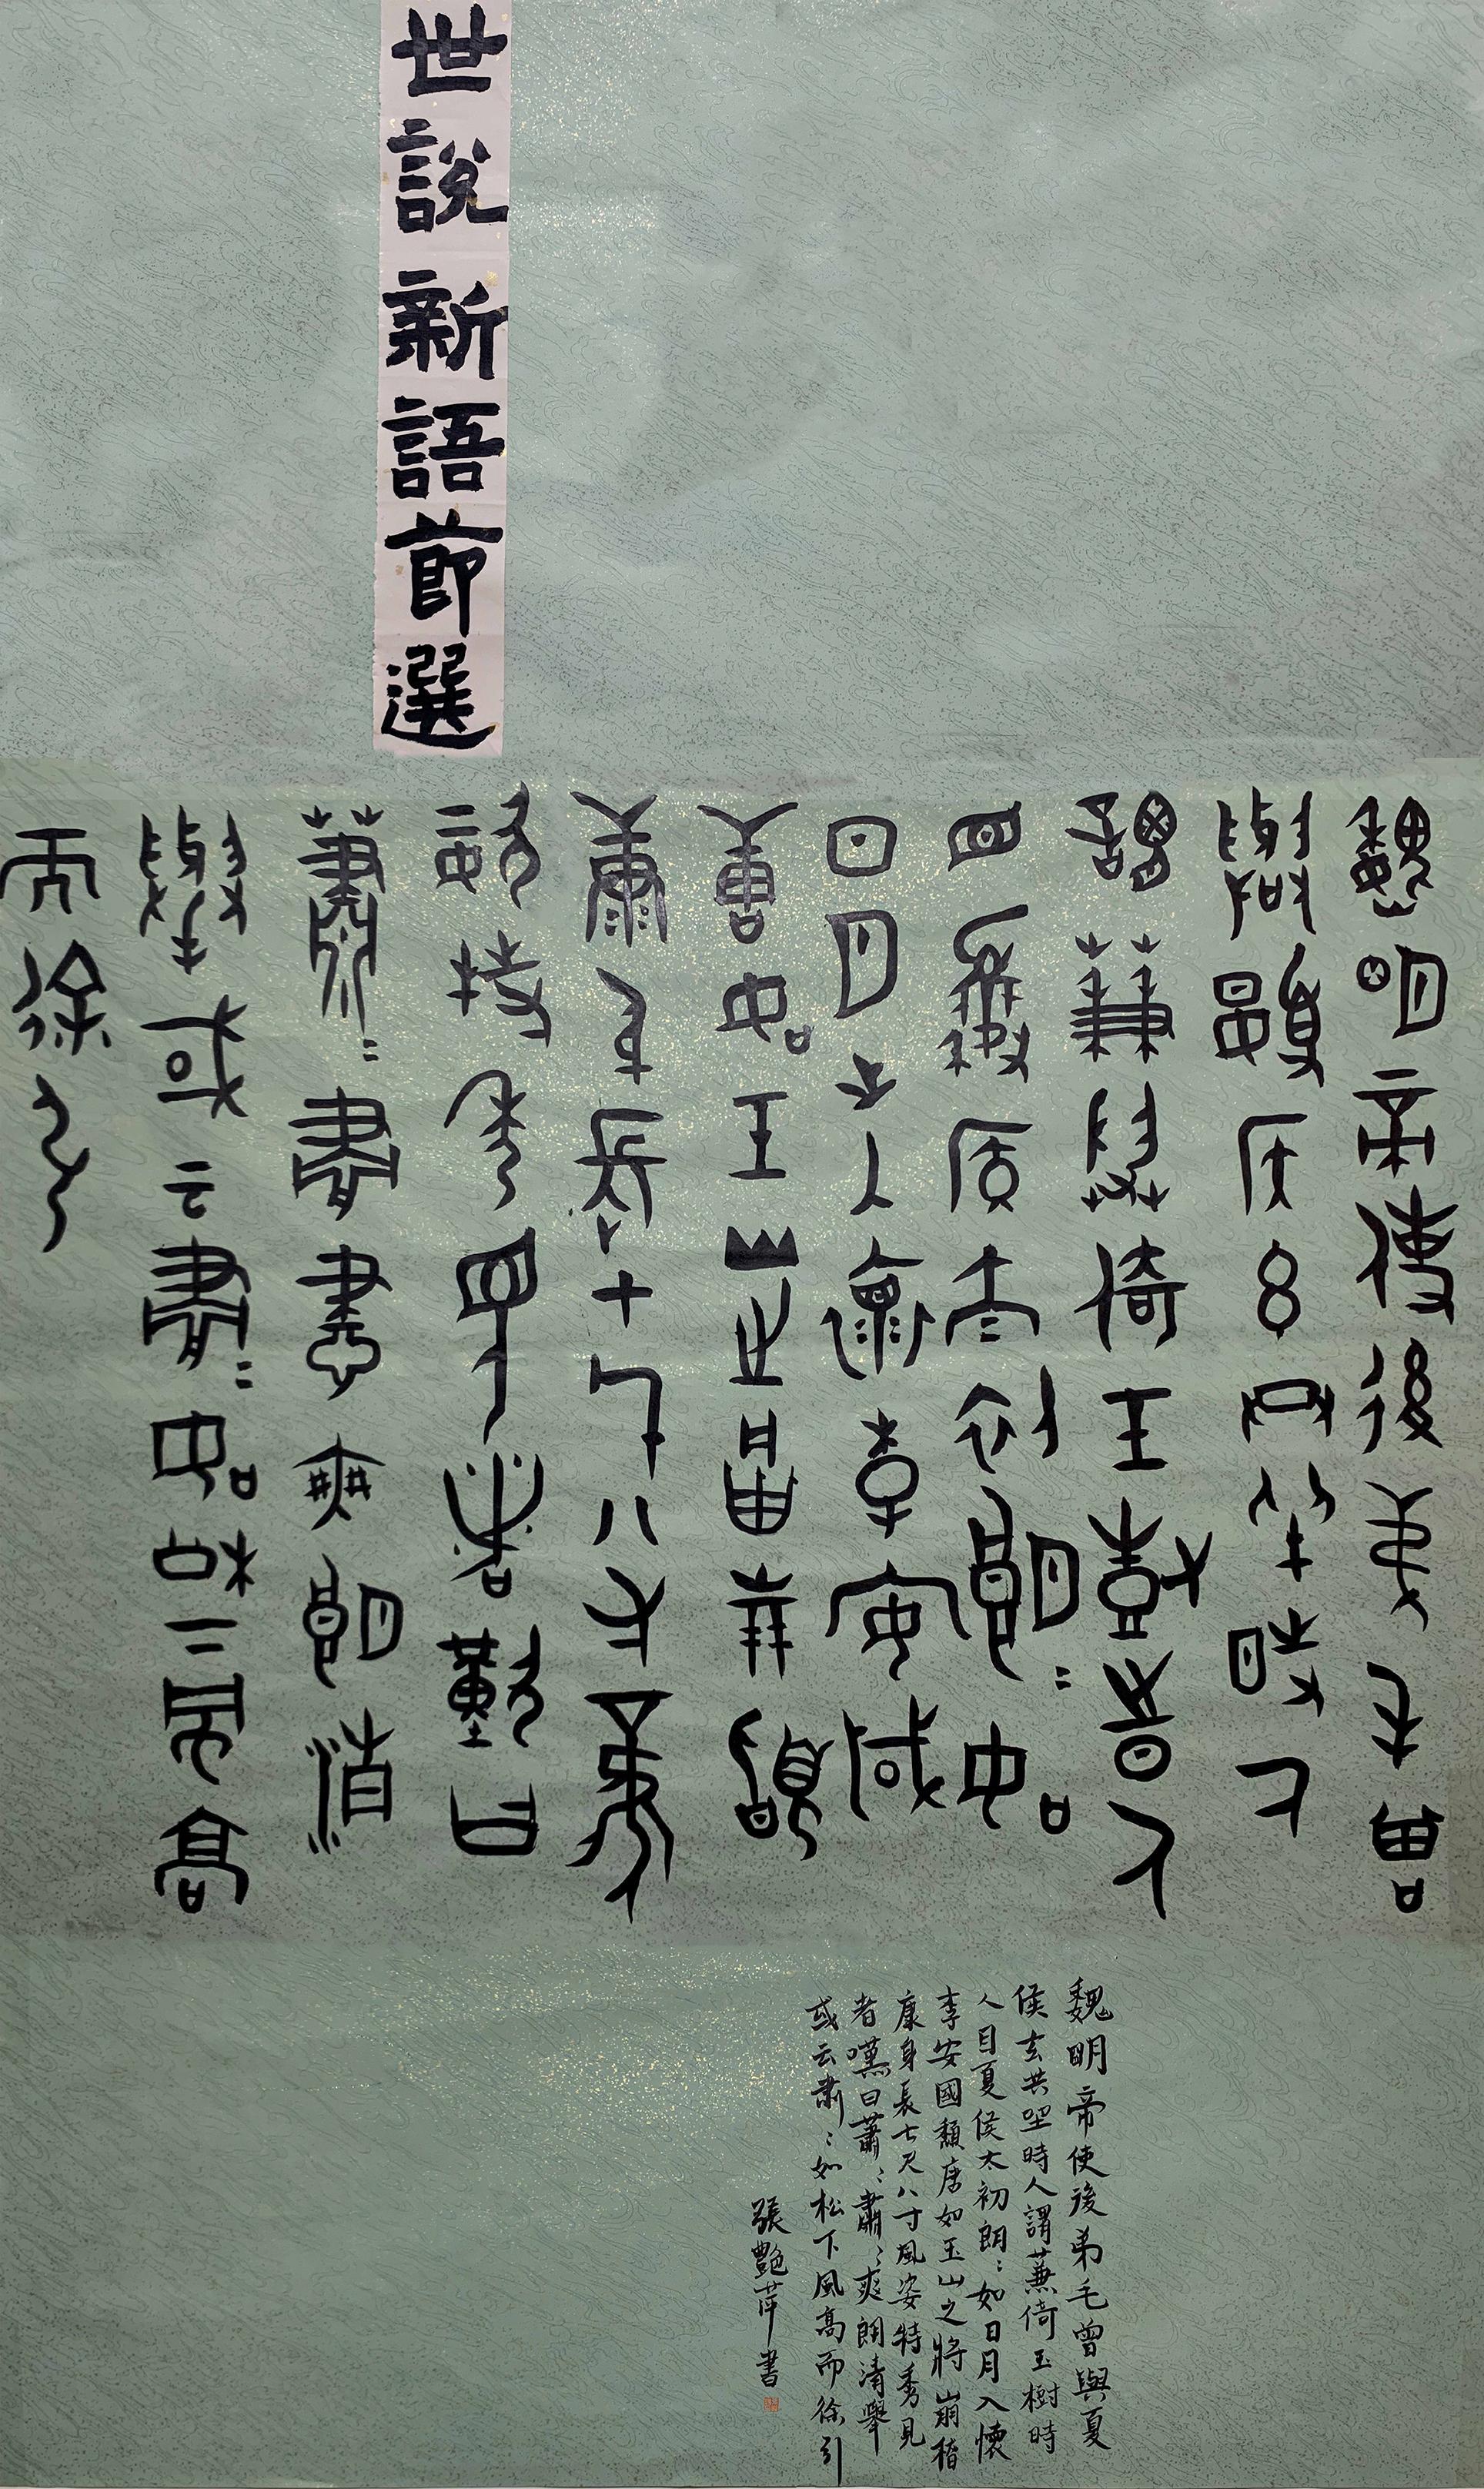 世說新語節選
魏明帝使後弟毛曾
與夏侯玄共坐時人
謂蒹葭倚玉樹時人
目夏侯太初朗〻如
日月之入懷李安國
唐如玉山之將崩嵇
康身長七尺八寸風
姿特秀見者嘆曰
蕭〻肅肅爽朗清
舉或云肅〻如松下風高
而徐引
魏明帝使後弟毛曾與夏
侯玄共坐時人謂蒹倚玉樹時
人目夏侯太初朗〻如日月入懷
李安國頹唐如玉山之將崩嵇
康身長七尺八寸風姿特秀見
者嘆曰蕭〻肅〻爽朗清舉
或云肅〻如松下風高而徐引
張艷萍書